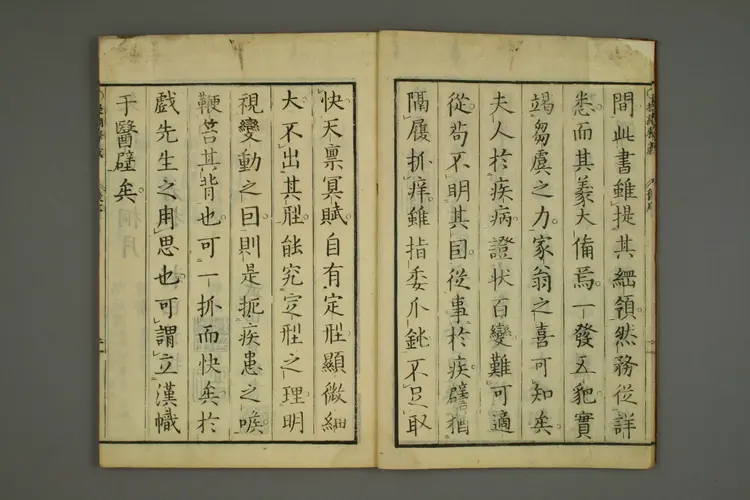 間此書雖提其綱領然務從詳
悉而其義大備焉一發五豝實
竭芻虞之力家翁之喜可知矣
夫人於疾病證狀百變難可適
從苟不明其因從事於疾譬猶
隔履抓痒雖指委爪銚不足取
快天稟冥賦自有定形顯微細
大不出其形能究定形之理明
視變動之因則是扼疾患之喉
鞭笞其背也可一抓而快矣於
戲先生之用思也可謂立漢幟
于醫壁矣